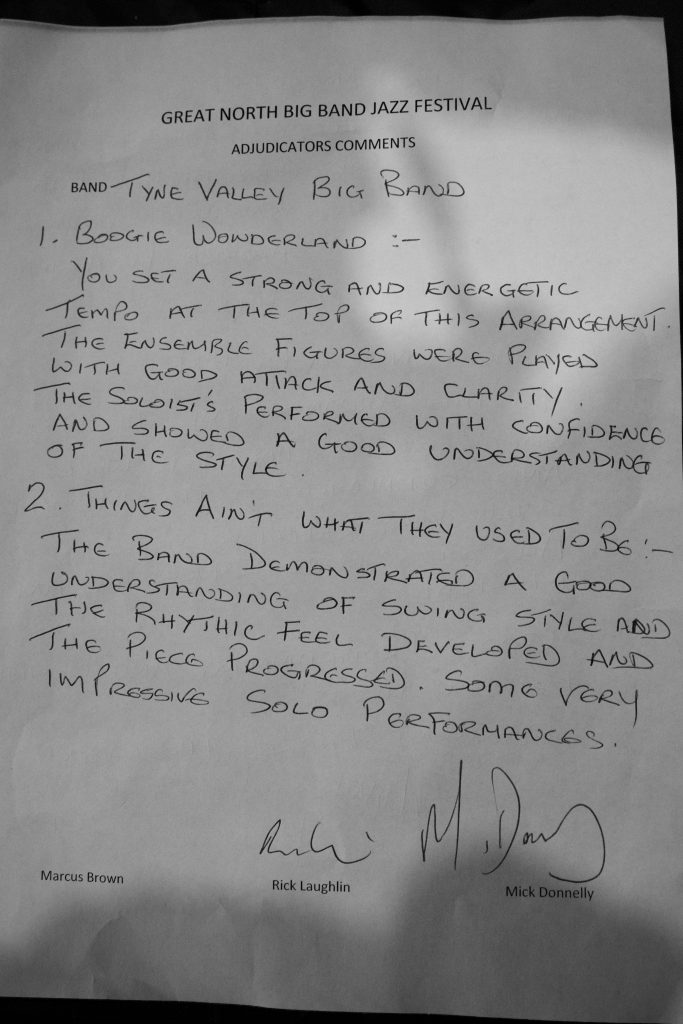 GREAT NORTH BIG BAND JAZZ FESTIVAL
ADJUDICATORS COMMENTS
BAND TYNE VALLEY BIG BAND
1. BOOGIE WONDERLAND :-
YOU SET A STRONG AND ENERGETIC
TEMPO AT THE TOP OF THIS ARRANGEMENT.
THE ENSEMBLE FIGURES WERE PLAYED
WITH GOOD ATTACK AND CLARITY.
THE SOLOIST'S PERFORMED WITH CONFIDENCE
AND SHOWED A GOOD UNDERSTANDING
OF THE STYLE.
2. THINGS AIN'T WHAT THEY USED TO BE :-
THE BAND DEMONSTRATED A GOOD
UNDERSTANDING OF SWING STYLE AND
THE RHYTHIC FEEL DEVELOPED AND
THE PIECE PROGRESSED. SOME VERY
IMPRESSIVE SOLO PERFORMANCES.
Marcus Brown
Rick Laughlin
Mick Donnelly